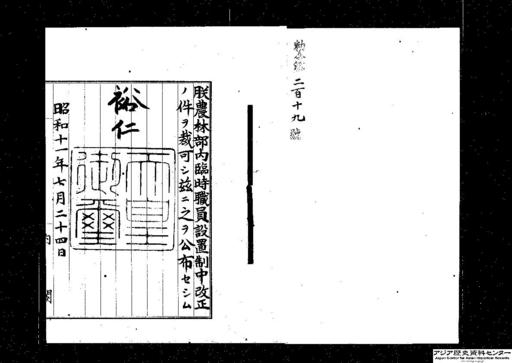 勅令第二百十九號
朕農林部內臨時職員設置制中改正
ノ件ヲ裁可シ茲ニ之ヲ公布セシム
裕仁
天皇
御璽
昭和十一年七月二十四日
内閣
アジア歴史資料センター
Japan Center for Asian Historical Records